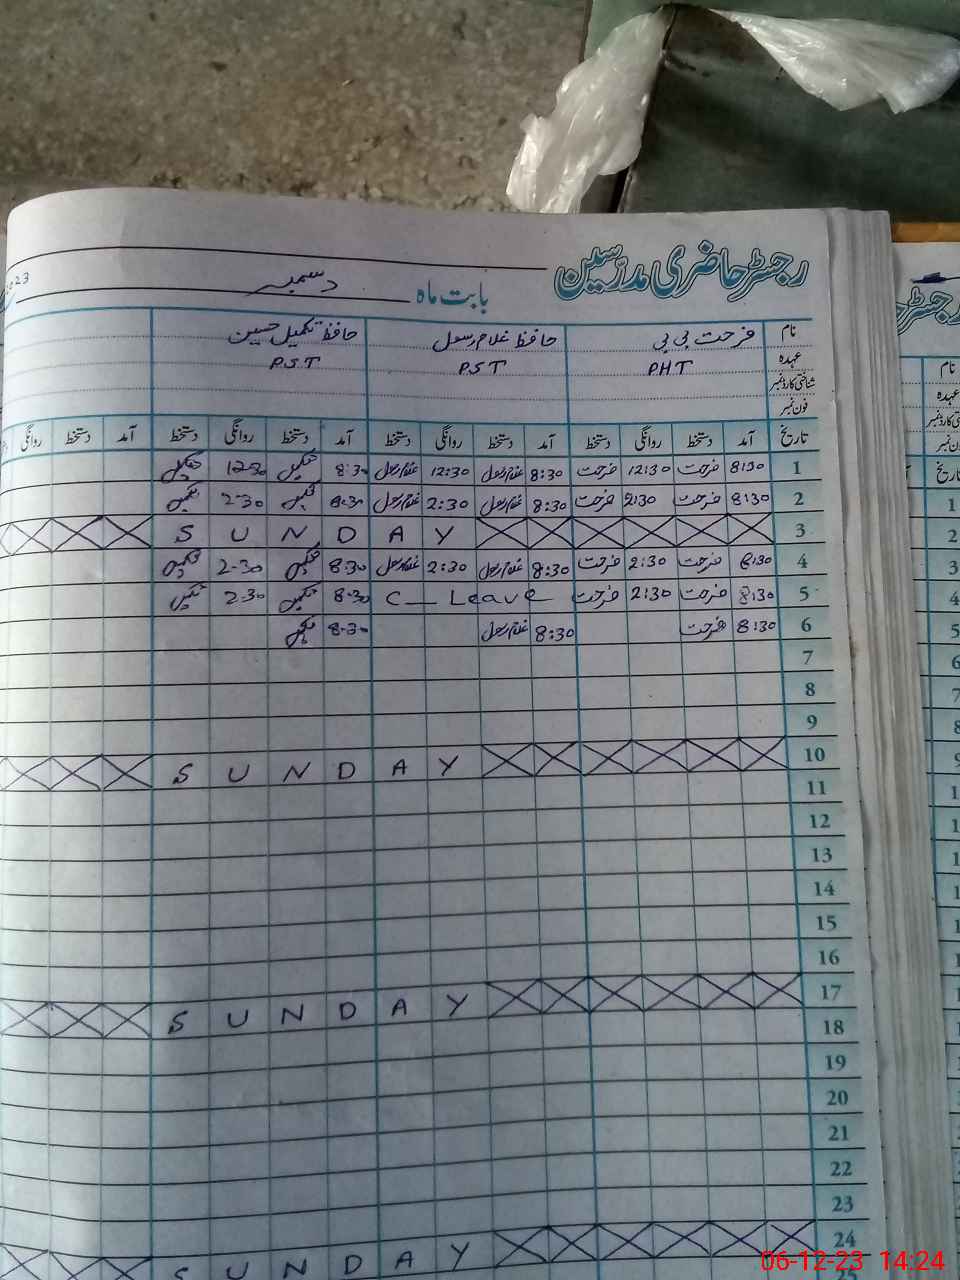 رجسٹر حاضری مدرسین
بابت ماہ دسمبر 2023
نام فرحت بی بی حافظ غلام رسول حافظ تکمیل حسین
عہدہ PHT PST PST
شناختی کارڈ نمبر
فون نمبر
تاریخ آمد دستخط روانگی دستخط آمد دستخط روانگی دستخط آمد دستخط روانگی دستخط آمد دستخط روانگی
1 8:30 فرحت 12:30 فرحت 8:30 غلام رسول 12:30 غلام رسول 8:30 تکمیل 12:30 تکمیل
2 8:30 فرحت 2:30 فرحت 8:30 غلام رسول 2:30 غلام رسول 8:30 تکمیل 2:30 تکمیل
3 SUNDAY
4 8:30 فرحت 2:30 فرحت 8:30 غلام رسول 2:30 غلام رسول 8:30 تکمیل 2:30 تکمیل
5 8:30 فرحت 2:30 فرحت C_Leave 8:30 تکمیل 2:30 تکمیل
6 8:30 فرحت 8:30 غلام رسول 8:30 تکمیل
7
8
9
10 SUNDAY
11
12
13
14
15
16
17 SUNDAY
18
19
20
21
22
23
24 SUNDAY
25
رجسٹر
نام
عہدہ
شناختی کارڈ نمبر
فون نمبر
تاریخ
1
2
3
4
5
6
7
8
06-12-23 14:24